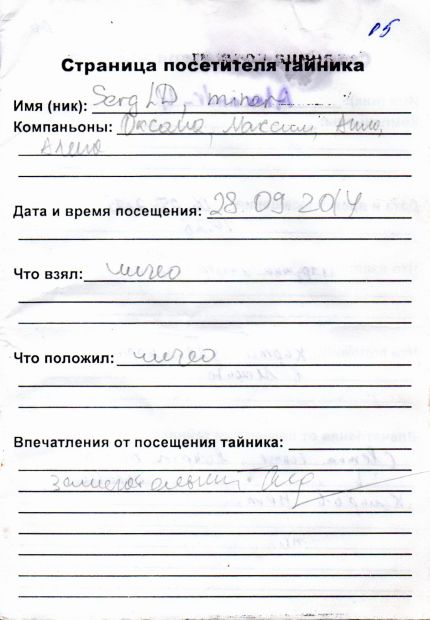 р5
Страница посетителя тайника
Имя (ник): SergLD, minor
Компаньоны: Оксана, Максим, Анна,
Алена
Дата и время посещения: 28 09 2014
Что взял: ничего
Что положил: ничего
Впечатления от посещения тайника:
замечательный